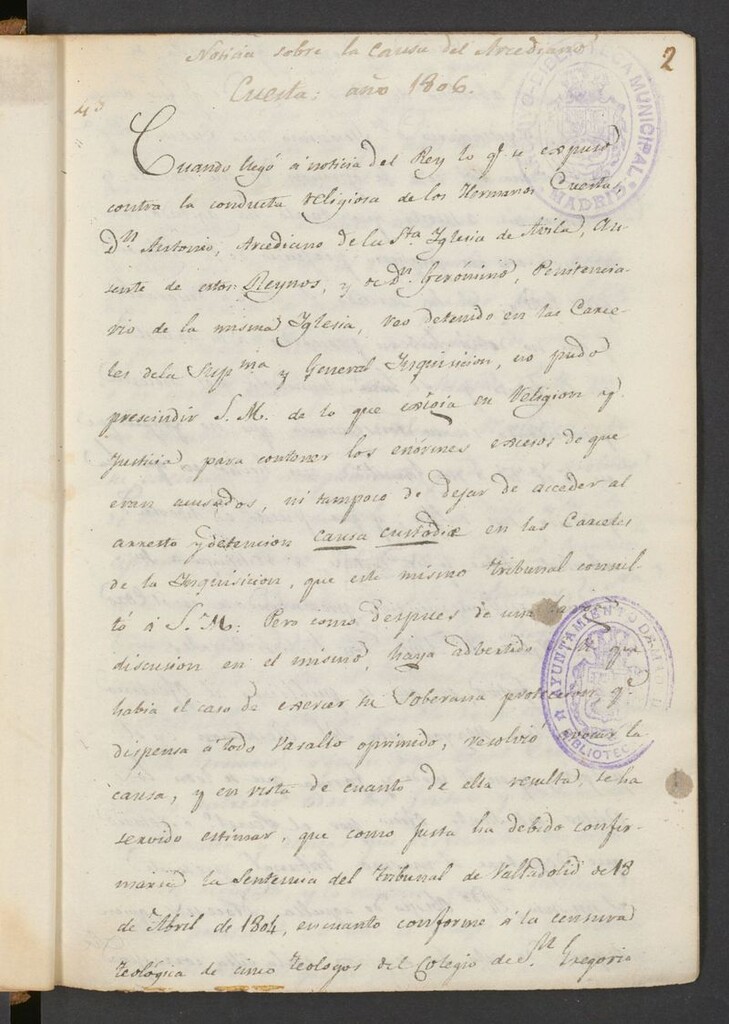 2
Noticia sobre la causa del Arcediano
Cuesta: año 1806.
Cuando llegó á noticia del Rey lo q.e se expuso
contra la conducta religiosa de los Hermanos Cuesta,
D.n Antonio, Arcediano de la S.ta Iglesia de Avila, Au-
sente de estos Reynos, y de D.n Gerónimo, Penitencia-
rio de la misma Iglesia, reo detenido en las Carce-
les de la Sup.ma y General Inquisicion, no pudo
prescindir S. M. de lo que exigia su Religion y
Justicia para contener los enórmes excesos de que
eran acusados, ni tampoco de dejar de acceder al
arresto y detencion causa custodiæ en las Carceles
de la Inquisicion, que este mismo tribunal consul-
tó á S. M: Pero como despues de una
discusion en el mismo, haya advertido que
habia el caso de exercer su Soberana proteccion q.e
dispensa á todo Vasallo oprimido, resolvió avocar la
causa, y en vista de cuanto de ella resulta, se ha
servido estimar, que como justa ha debido confir-
marse la Sentencia del tribunal de Valladolid de 18
de Abril de 1804, en cuanto conforme á la censura
teológica de cinco teologos del Colegio de S.n Gregorio
BIBLIOTECA MUNICIPAL
MADRID
AYUNTAMIENTO DE MADRID
BIBLIOTECA